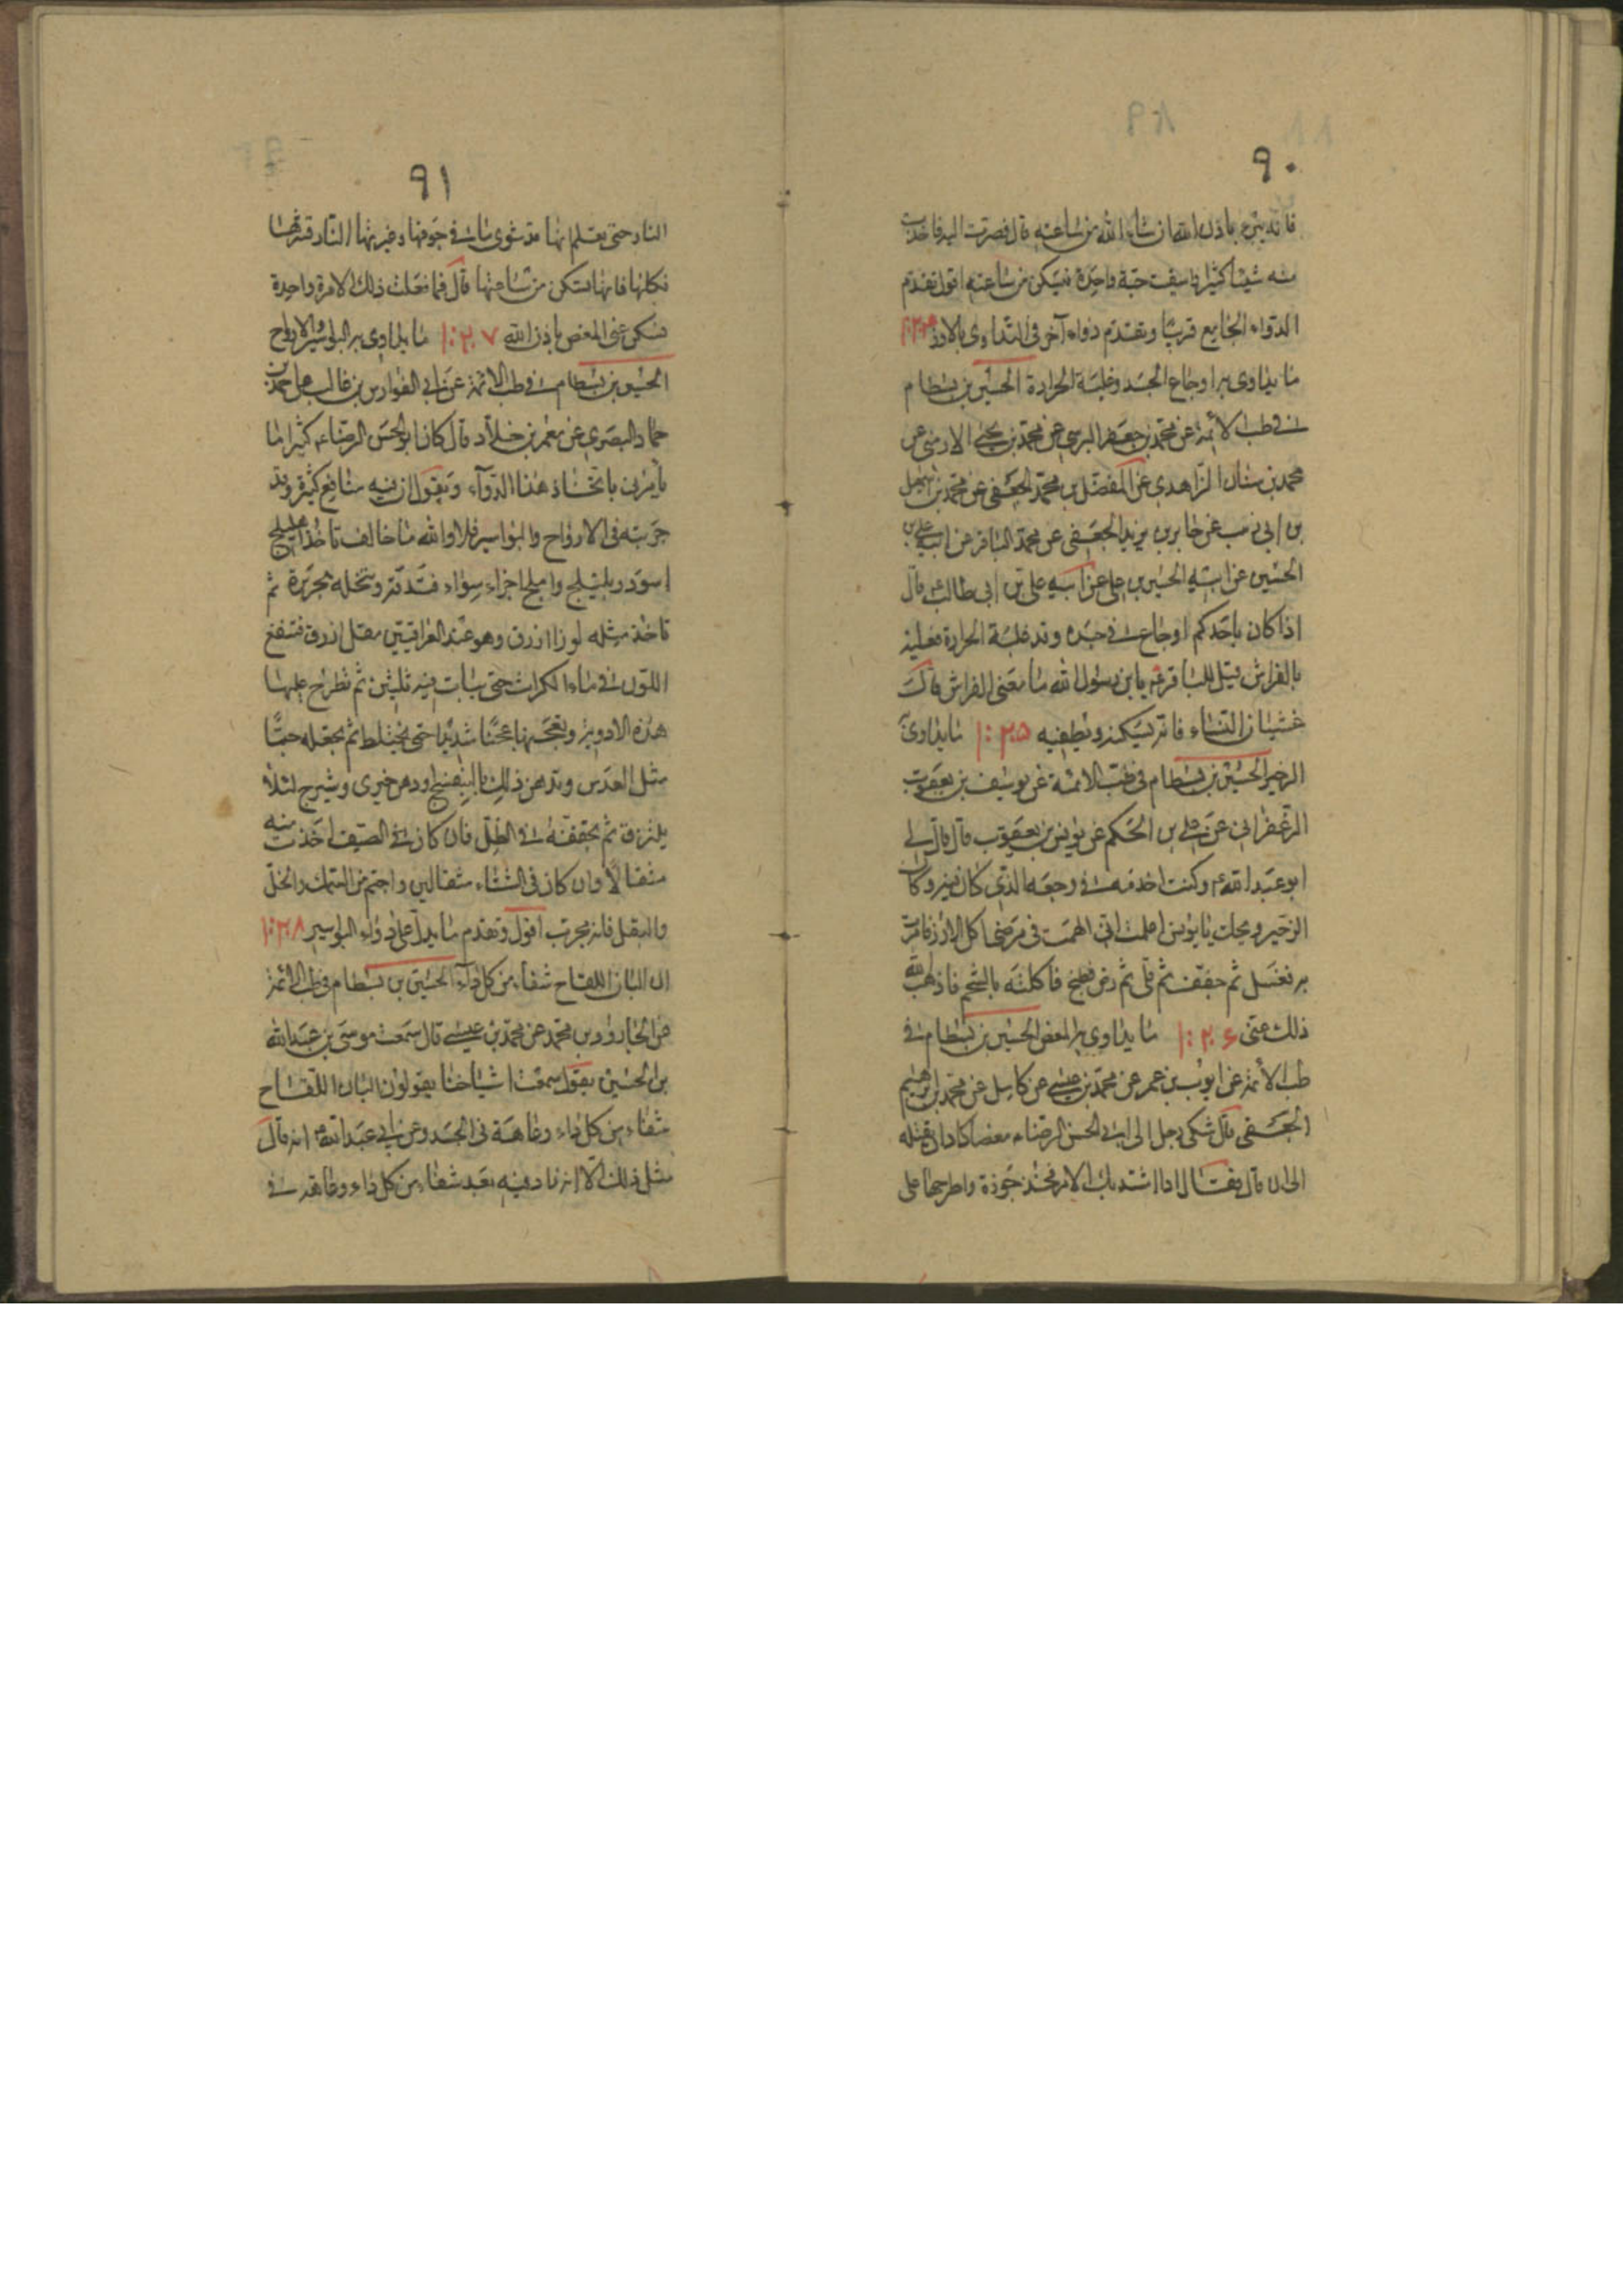 ٩٠
فانه يبرء باذن الله ان شاء الله من ساعته قال فصرت اليه فاخذت
منه شيئا كثيرا فاسقيت حبة واحدة فسكن من ساعته اقول تقدم
الدواء الجامع قريبا وتقدم دواء آخر فى التداوى بالارز
ما يداوى به اوجاع الجسد وغلبة الحرارة الحسين بن بسطام
فى طب الائمة عن محمد بن جعفر البرسي عن محمد بن يحيى الارمنى عن
محمد بن سنان الزاهدي عن المفضل بن محمد الجعفى عن محمد بن اسمعيل
بن ابى زينب عن جابر بن يزيد الجعفى عن محمد الباقر عن ابيه على بن
الحسين عن ابيه الحسين بن على عن ابيه على بن ابى طالب ع قال
اذا كان باحدكم اوجاع فى جسده وقد غلبته الحرارة فعليه
بالفراش قيل للباقر ع يابن رسول الله ما معنى الفراش قال
غشيان النساء فانه يسكنه ويطفيه ١:٢٠٥ ما يداوى به
الزحير الحسين بن بسطام فى طب الائمة عن يوسف بن يعقوب
الزعفرانى عن على بن الحكم عن يونس بن يعقوب قال قال لى
ابو عبد الله ع وكنت اخدمه فى وجعه الذى كان فيه وكان
الزحير ويحك يا يونس اعلمت انى الهمت فى مرضى اكل الارز فامرت
به فغسل ثم جفف ثم قلى ثم رض فطبخ فاكلته بالشحم فاذهب الله
ذلك عنى ١:٢٠٦ ما يداوى به المغص الحسين بن بسطام فى
طب الائمة عن ايوب بن عمر عن محمد بن عيسى عن كامل عن محمد بن ابرهيم
الجعفى قال شكى رجل الى ابى الحسن الرضا ع مغصا كاد ان يقتله
الى ان قال فقال اذا اشتد بك الامر فخذ جوزة واطرحها على
٩١
النار حتى تعلم انها قد شوى ما فى جوفها وغيرتها النار قشرها
فكلها فانها تسكن من ساعتها قال فما فعلت ذلك الا مرة واحدة
فسكن عنى المغص باذن الله ١:٢٠٧ ما يداوى به البواسير والارواح
الحسين بن بسطام فى طب الائمة عن ابى الفوارس بن غالب بن محمد بن
حماد البصرى عن معمر بن خلاد قال كان ابو الحسن الرضا ع كثيرا ما
يامرنى باتخاذ هذا الدوآء ويقول ان فيه منافع كثيرة وقد
جربته فى الارواح والبواسير فلا والله ما خالف تاخذ اهليلج
اسود وبليلج واملج اجزاء سواء فتدقه وتنخله بحريرة ثم
تاخذ مثله لوزا ازرق وهو عند العراقيين مقل ازرق فتنقع
اللوز فى ماء الكراث حتى يبات فيه ثلثين ثم تطرح عليها
هذه الادوية وتعجنها عجنا شديدا حتى يختلط ثم تجعله حبا
مثل العدس وتدهن يدك بالبنفسج او دهن خيرى وشيرج لئلا
يلتزق ثم تجففه فى الظل فان كان فى الصيف اخذت منه
مثقالا وان كان فى الشتاء مثقالين واحتم من السمك والخل
والبقل فانه مجرب اقول وتقدم ما يدل على دواء البواسير ١:٢٠٨
ان البان اللقاح شفاء من كل داء الحسين بن بسطام فى طب الائمة
عن الجارود بن محمد عن محمد بن عيسى قال سمعت موسى بن عبد الله
بن الحسين يقول سمعت اشياخنا يقولون البان اللقاح
شفاء من كل داء وعاهة فى الجسد وعن ابى عبد الله ع انه قال
مثل ذلك الا انه زاد فيه بعد شفاء من كل داء وعاهة فى